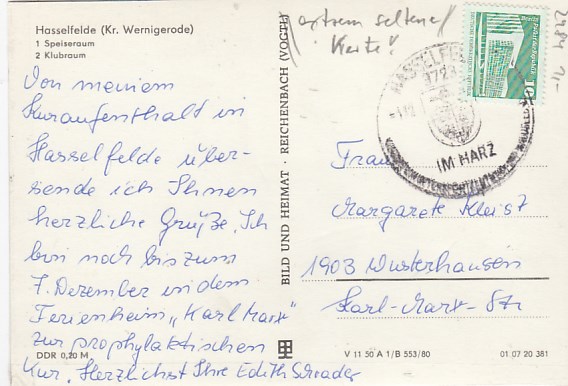 Hasselfelde (Kr. Wernigerode)
1 Speiseraum
2 Klubraum
Von meinem
Kuraufenthalt in
Hasselfelde über-
sende ich Ihnen
herzliche Grüße. Ich
bin noch bis zum
7. Dezember in dem
Ferienheim „Karl Marx"
zur prophylaktischen
Kur. Herzlichst Ihre Edith Schrader
DDR 0,20 M
BILD UND HEIMAT · REICHENBACH (VOGTL)
extrem seltene
Karte!
HASSELFE
IM HARZ
10
Frau
Margarete Kleist
1903 Wusterhausen
Karl-Marx-Str
V 11 50 A 1/B 553/80
01 07 20 381